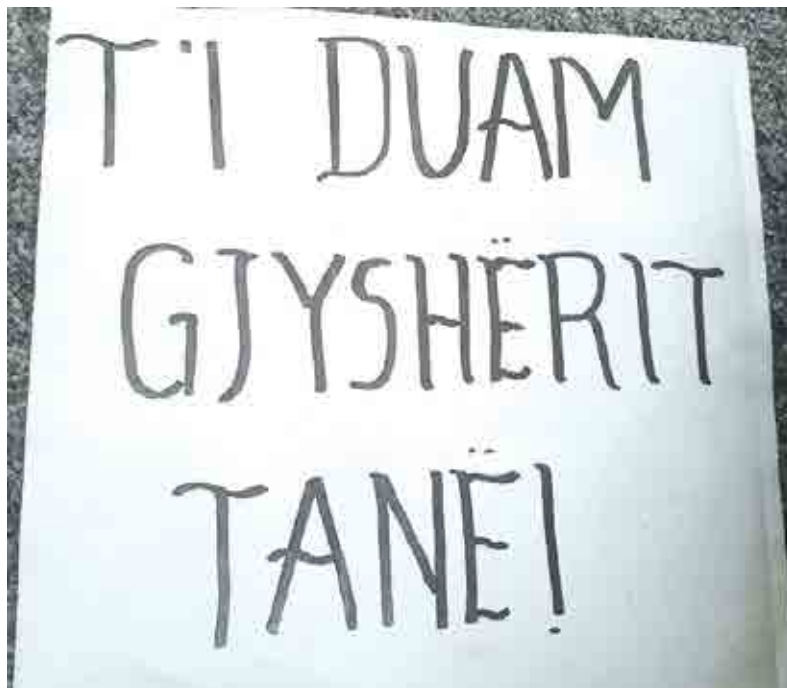 T'I DUAM
GJYSHËRIT
TANË!